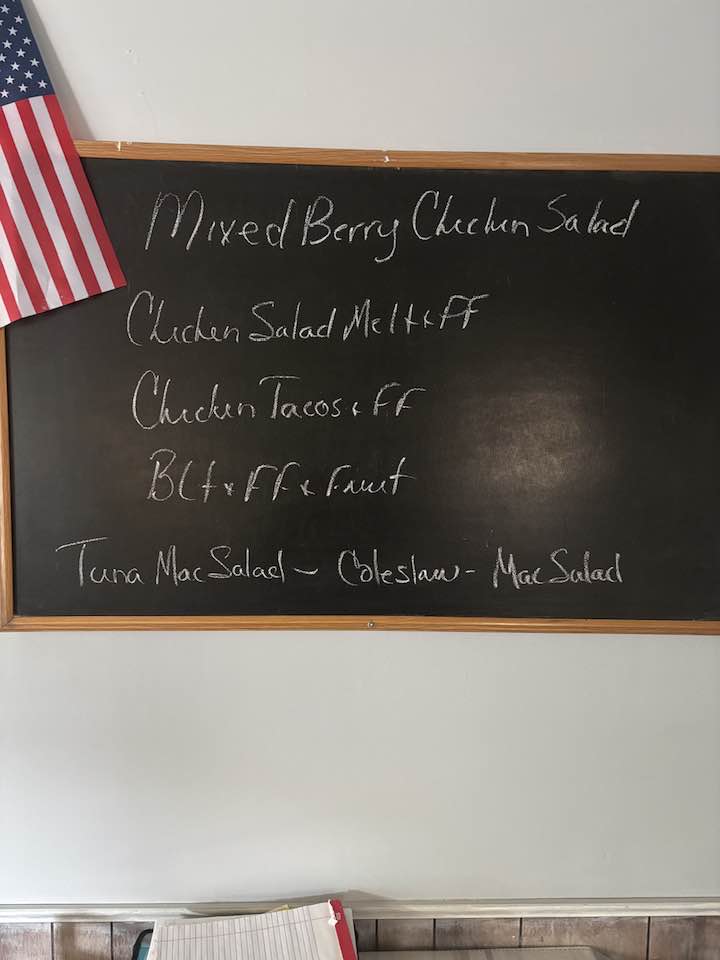 Mixed Berry Chicken Salad
Chicken Salad Melt & FF
Chicken Tacos & FF
Blt & FF & Fruit
Tuna Mac Salad - Coleslaw - Mac Salad